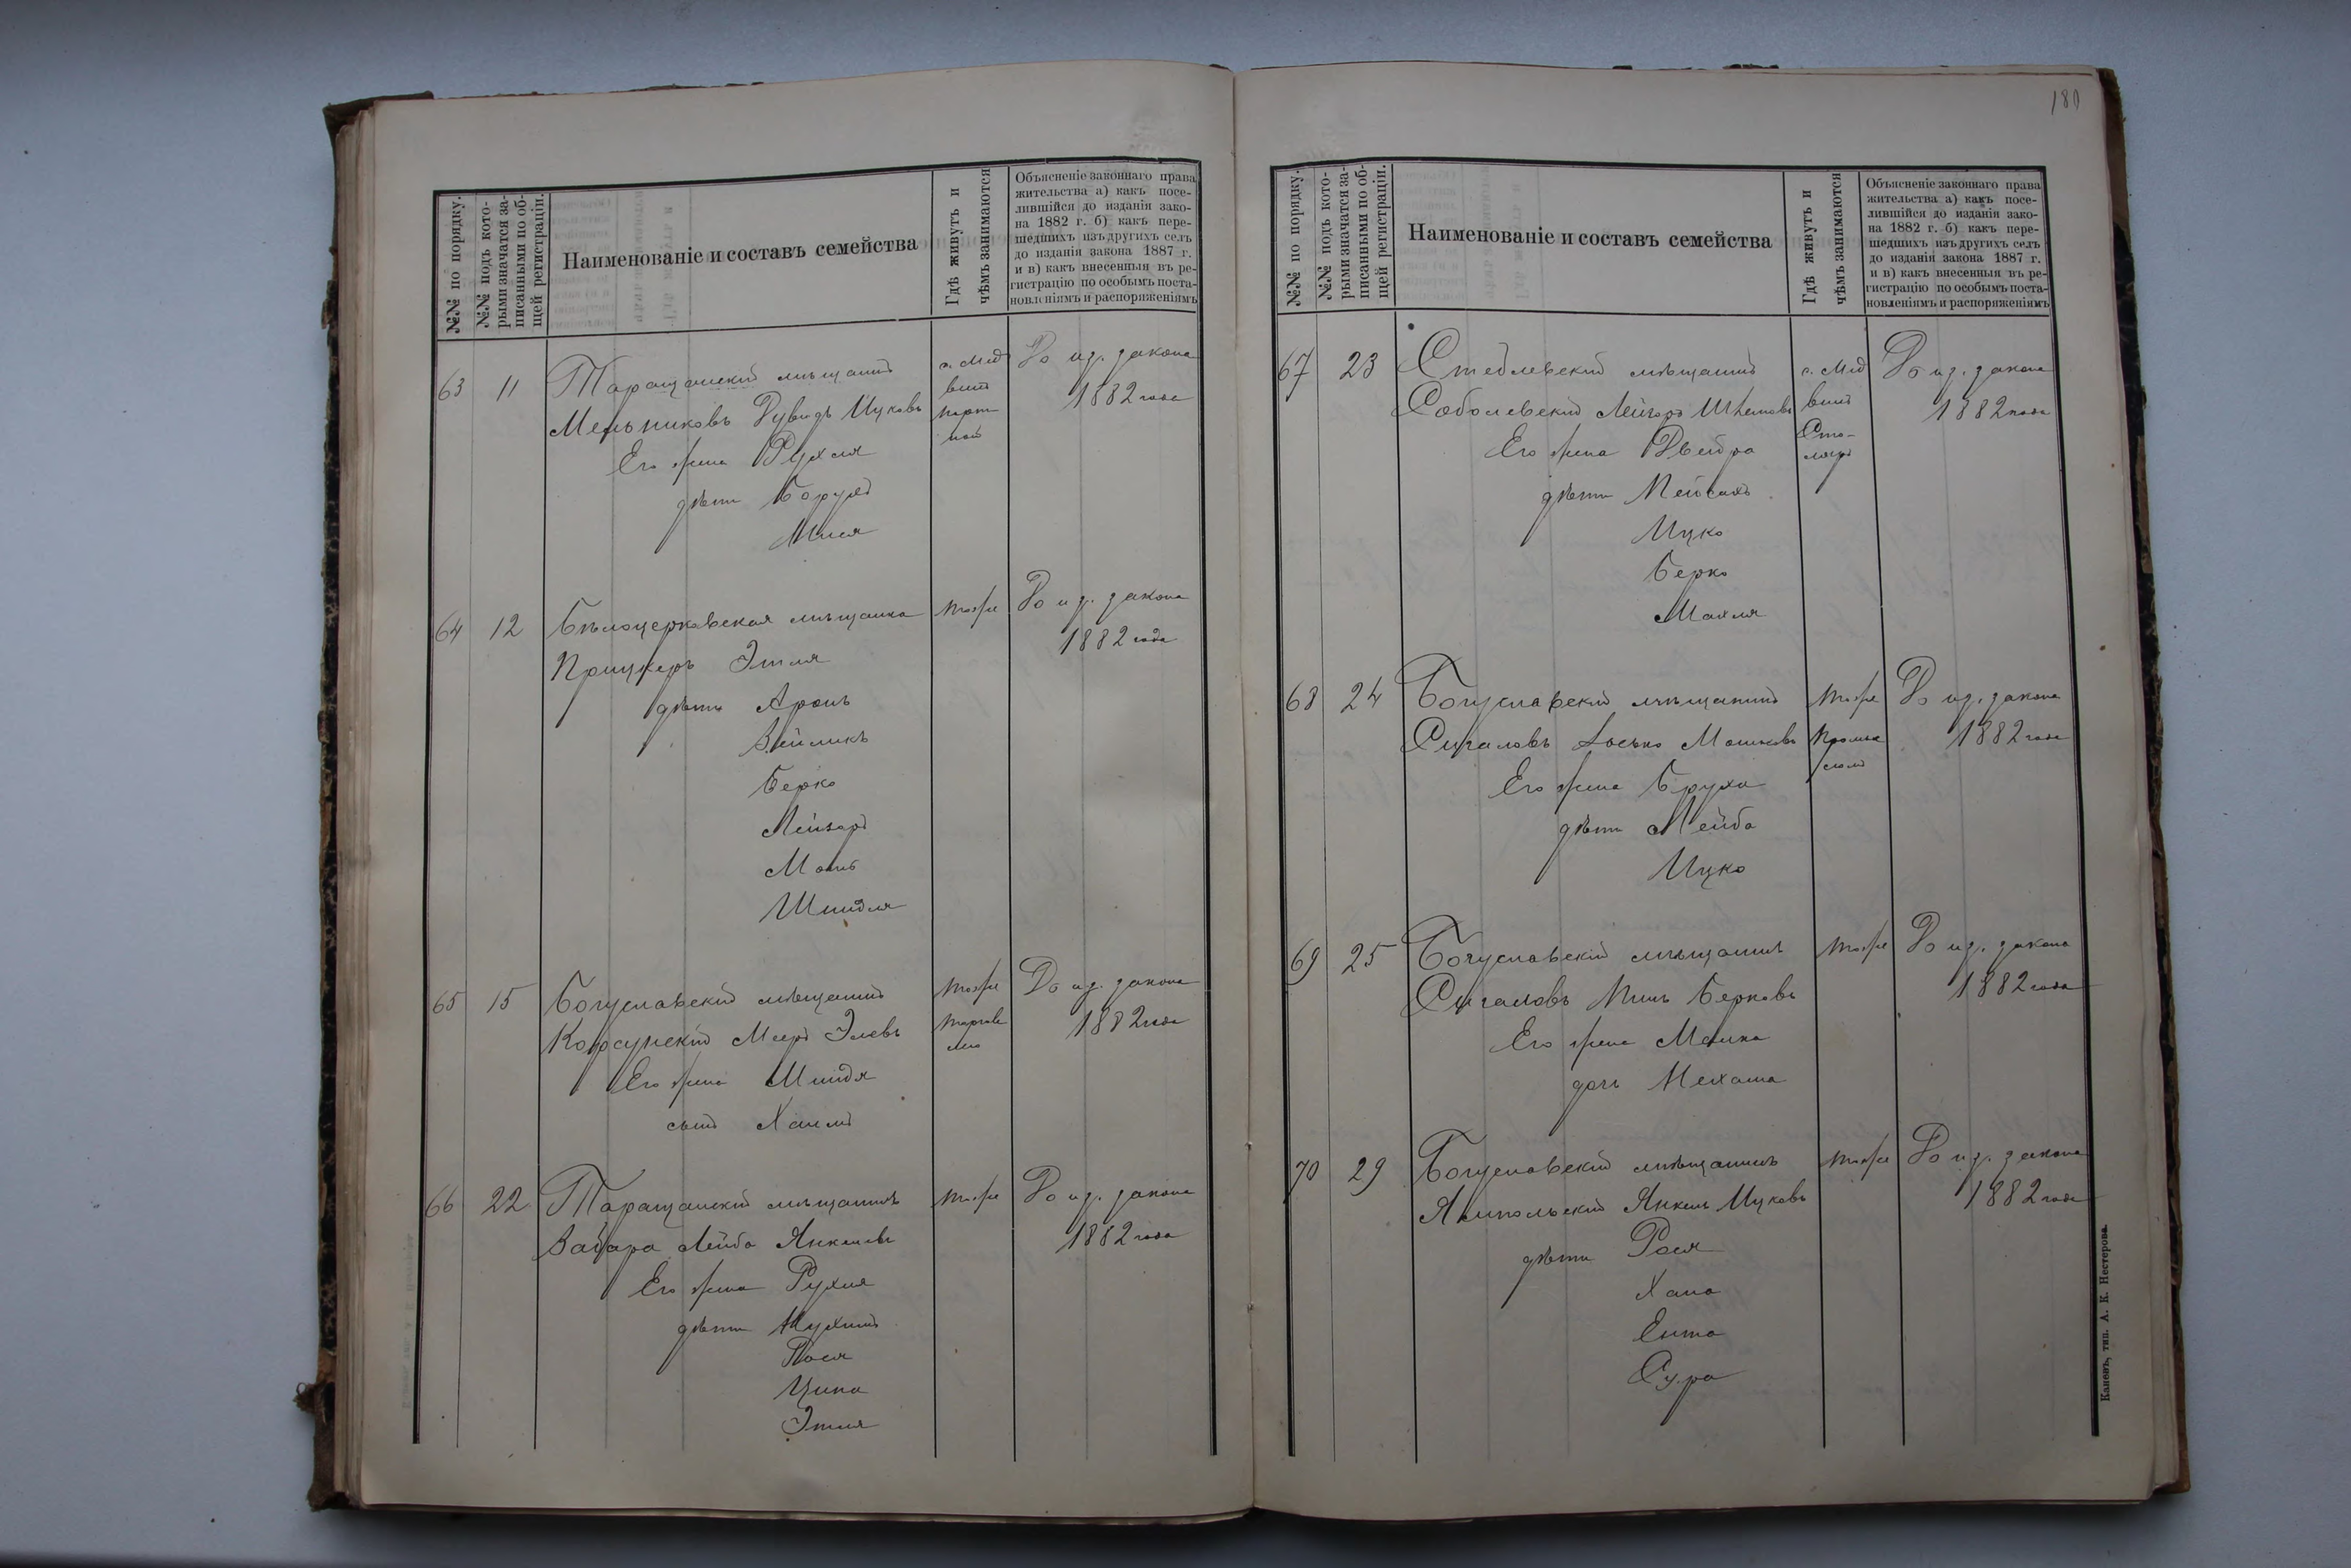 №№ по порядку.
№№ подъ кото-
рыми значатся за-
писанными по об-
щей регистраціи.
Наименованіе и составъ семейства
Гдѣ живутъ и
чѣмъ занимаются
Объясненіе законнаго права
жительства а) какъ посе-
лившійся до изданія зако-
на 1882 г. б) какъ пере-
шедшихъ изъ другихъ селъ
до изданія закона 1887 г.
и в) какъ внесенныя въ ре-
гистрацію по особымъ поста-
новленіямъ и распоряженіямъ
63 11 Таращанскій мѣщанинъ До из. закона
Мельниковъ Дувидъ Ицковъ 1882 года
Его жена Рухля
дѣти Борухъ
64 12 Бѣлоцерковская мѣщанка тоже До из. закона
Прицкеръ Этля 1882 года
дѣти Аронъ
Зейликъ
Берко
Лейзоръ
Шиндля
65 15 Богуславскій мѣщанинъ тоже До из. закона
Корсунскій Мееръ Элевъ 1882 года
Его жена Миндя
сынъ Хаимъ
66 22 Таращанскій мѣщанинъ тоже До из. закона
Лейба Янкелевъ 1882 года
Его жена Рухля
дѣти Нухимъ
Ципа
Этля
180
№№ по порядку.
№№ подъ кото-
рыми значатся за-
писанными по об-
щей регистраціи.
Наименованіе и составъ семейства
Гдѣ живутъ и
чѣмъ занимаются
Объясненіе законнаго права
жительства а) какъ посе-
лившійся до изданія зако-
на 1882 г. б) какъ пере-
шедшихъ изъ другихъ селъ
до изданія закона 1887 г.
и в) какъ внесенныя въ ре-
гистрацію по особымъ поста-
новленіямъ и распоряженіямъ
67 23 Стеблевскій мѣщанинъ До из. закона
Соболевскій 1882 года
Его жена Двейра Сто-
ляръ
дѣти Пейсахъ
Ицко
Берко
Махля
68 24 Богуславскій мѣщанинъ тоже До из. закона
Сигаловъ Іосько Мошковъ 1882 года
Его жена Бруха
дѣти Лейба
Ицко
69 25 Богуславскій мѣщанинъ тоже До из. закона
Сигаловъ Берковъ 1882 года
Его жена Малка
дочь Нехама
70 29 Богуславскій мѣщанинъ тоже До из. закона
Ямпольскій Янкель Ицковъ 1882 года
дѣти Рося
Хана
Ента
Сура
Каневъ, тип. А. К. Нестерова.